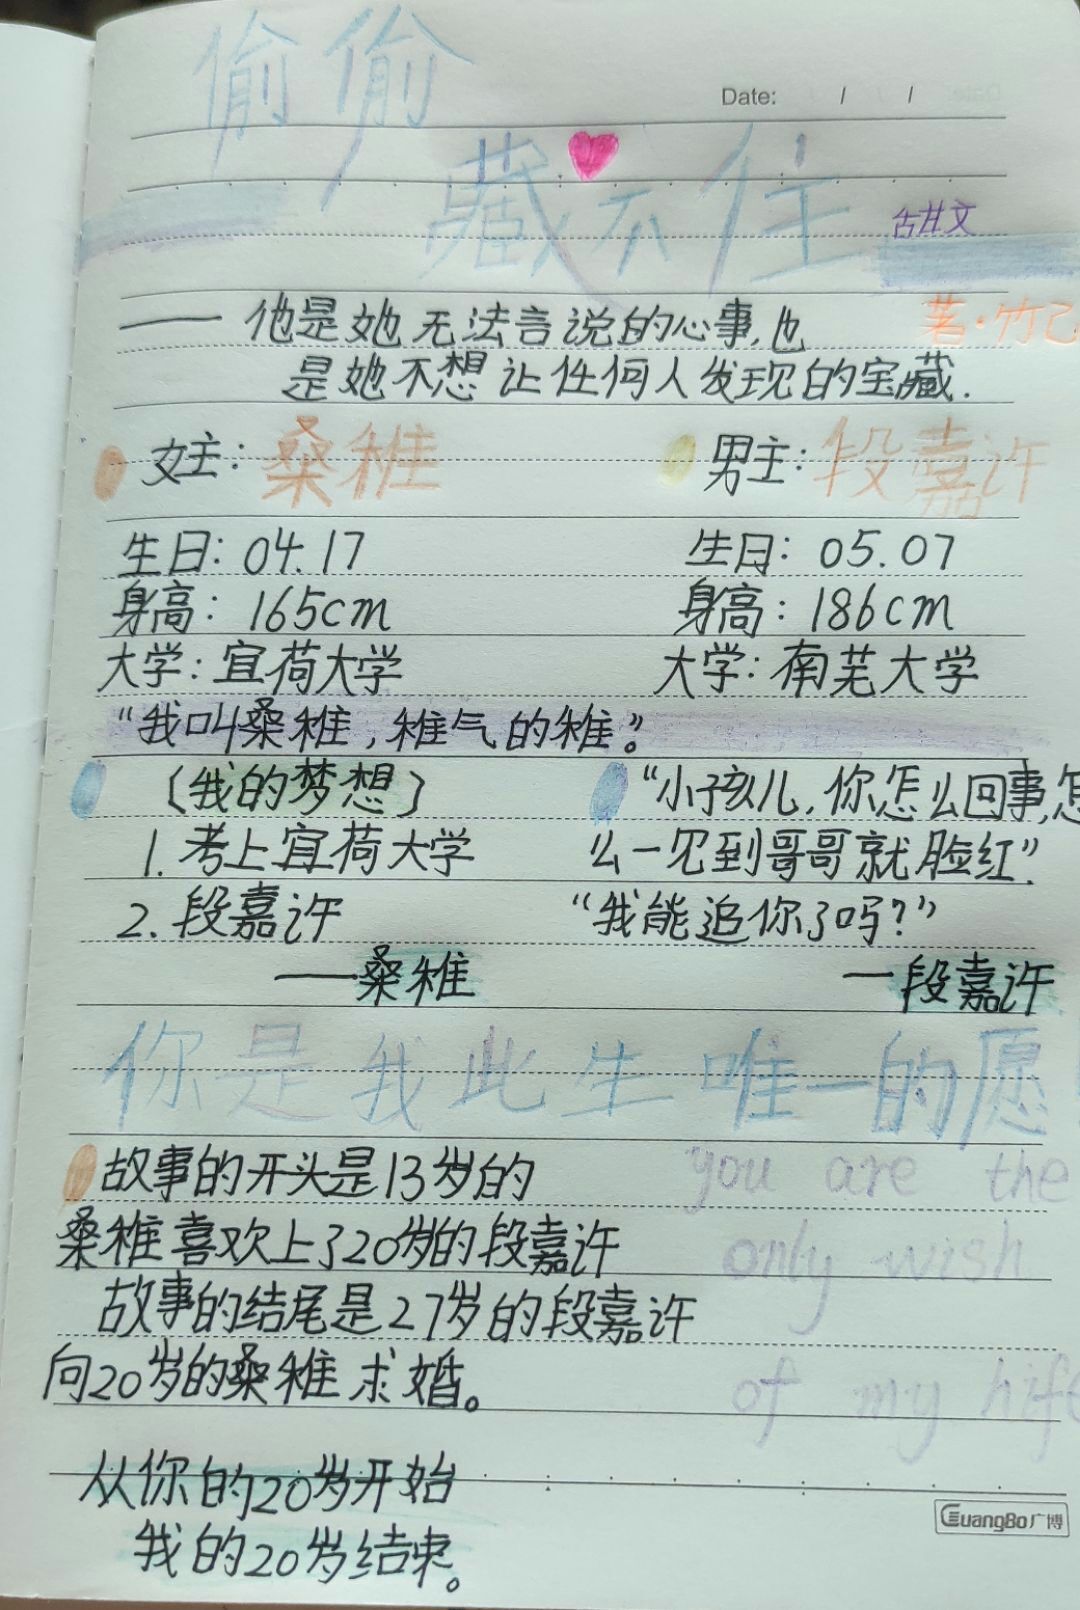 偷偷
Date: / /
藏不住
古甘文
——他是她无法言说的心事,也
著·竹已
是她不想让任何人发现的宝藏.
女主:桑稚 男主:段嘉许
生日:04.17 生日:05.07
身高:165cm 身高:186cm
大学:宜荷大学 大学:南芜大学
“我叫桑稚,稚气的稚。”
(我的梦想) “小孩儿,你怎么回事,怎
1.考上宜荷大学 么一见到哥哥就脸红”.
2.段嘉许 “我能追你了吗?”
——桑稚 —段嘉许
你是我此生唯一的愿
故事的开头是13岁的 you are the
桑稚喜欢上了20岁的段嘉许 only wish
故事的结尾是27岁的段嘉许
向20岁的桑稚求婚。 of my
从你的20岁开始
GuangBo广博
我的20岁结束。